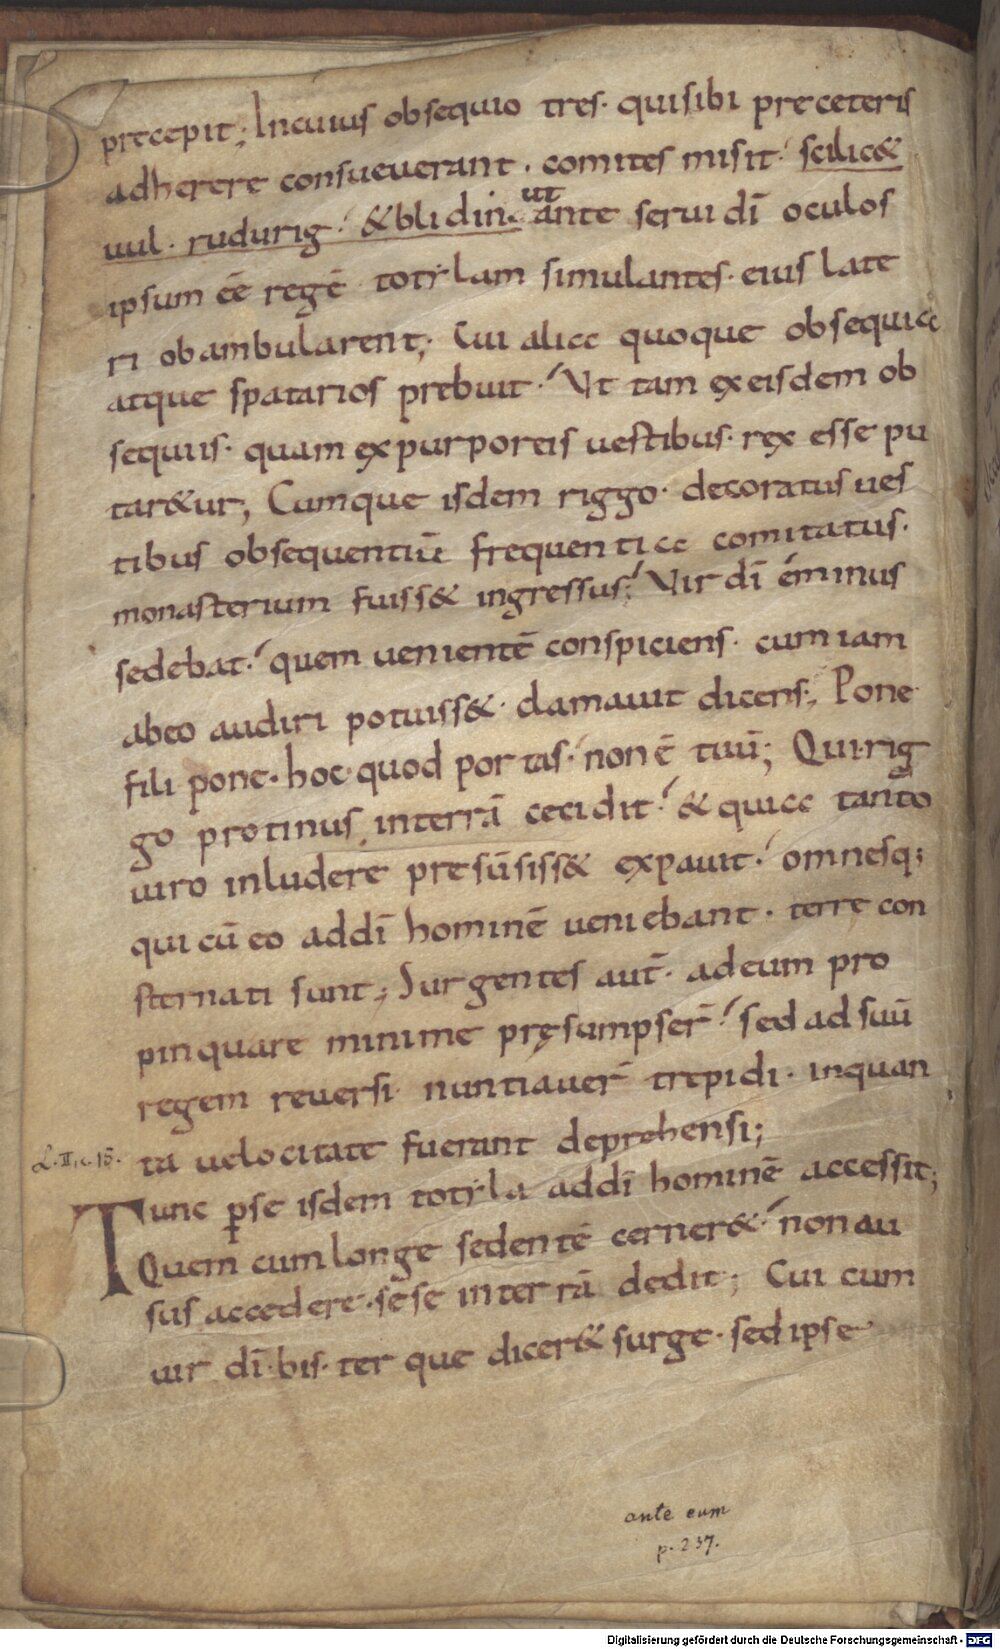 precepit; Incuius obsequio tres· quisibi preceteris
adherere consueuerant· comites misit· scilic&
uul· rudurig· &blidin· ut ante serui dī oculos
ipsum eē regē totylam simulantes· eius late
ri obambularent; Cui alia quoque obsequia
atque spatarios prebuit· Vt tam exeisdem ob
sequiis· quam expurporeis uestibus· rex esse pu
tar&ur; Cumque isdem riggo· decoratus ues
tibus obsequentiū frequentia comitatus·
monasterium fuiss& ingressus; Vir dī eminus
sedebat· quem uenientē conspiciens· cum iam
abeo audiri potuiss&· clamauit dicens; Pone
fili pone· hoc quod portas· non ē tuū; Qui rig
go protinus interrā cecidit· & quia tanto
uiro inludere presūsiss& expauit· omnesq;
qui cū eo addī hominē ueniebant· terre con
sternati sunt; Surgentes aut̄· adeum pro
pinquare minime pręsumpser̄· sed ad suū
regem reuersi nuntiauer̄ trepidi· inquan
ta uelocitate fuerant deprehensi;
L. II. c. 15.
Tunc ꝑse isdem totyla addī hominē accessit;
Quem cum longe sedentē cerner& non au
sus accedere· sese interrā dedit; Cui cum
uir dī· bis· ter que dicer& surge· sed ipse
ante eum
p. 237.
Digitalisierung gefördert durch die Deutsche Forschungsgemeinschaft - DFG